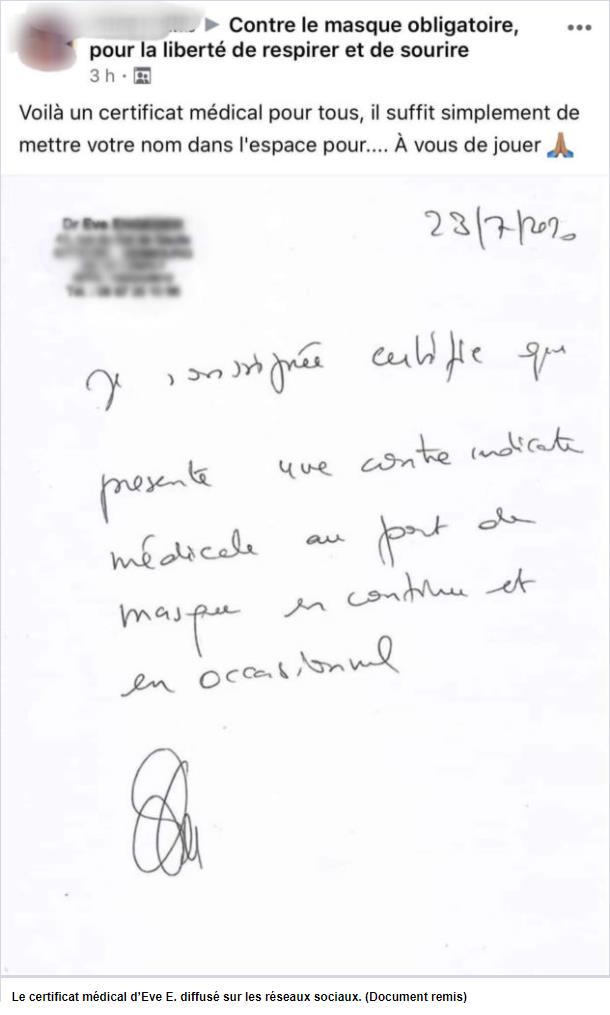 Contre le masque obligatoire,
pour la liberté de respirer et de sourire
3 h
Voilà un certificat médical pour tous, il suffit simplement de
mettre votre nom dans l'espace pour.... À vous de jouer 🙏🏽
Dr Eve
23/7/2020
Je soussignée certifie que
présente une contre indication
médicale au port de
masque en continu et
en occasionnel
Le certificat médical d'Eve E. diffusé sur les réseaux sociaux. (Document remis)